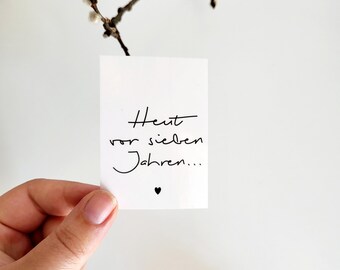 Heut
vor sieben
Jahren...